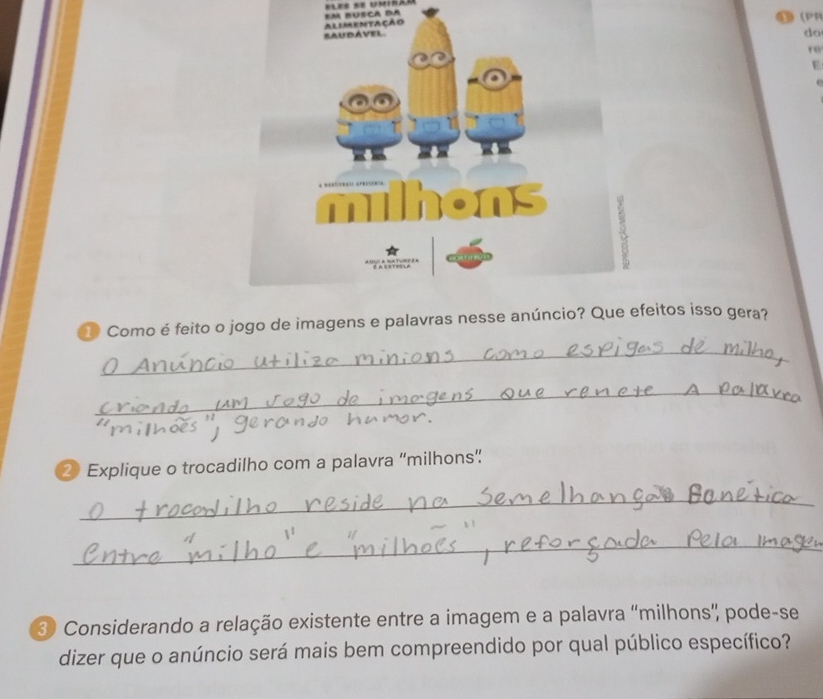 ELES SE UNIRAM
EM BUSCA DA
ALIMENTAÇÃO
SAUDÁVEL.
A HORTIFRUTI APRESENTA
milhons
AQUI A NATUREZA
É A ESTRELA
HORTIFRUTI
REPRODUÇÃO/MENTHES
1 (PR
do
re
E
e
1 Como é feito o jogo de imagens e palavras nesse anúncio? Que efeitos isso gera?
O Anúncio utiliza minions como espigas de milho,
criando um Jogo de imagens que renete A palavra
"milhões", gerando humor.
2 Explique o trocadilho com a palavra "milhons".
O trocadilho reside na semelhança Bonética
entre "milho" e "milhões", reforçada Pela Imagem
3 Considerando a relação existente entre a imagem e a palavra "milhons", pode-se
dizer que o anúncio será mais bem compreendido por qual público específico?